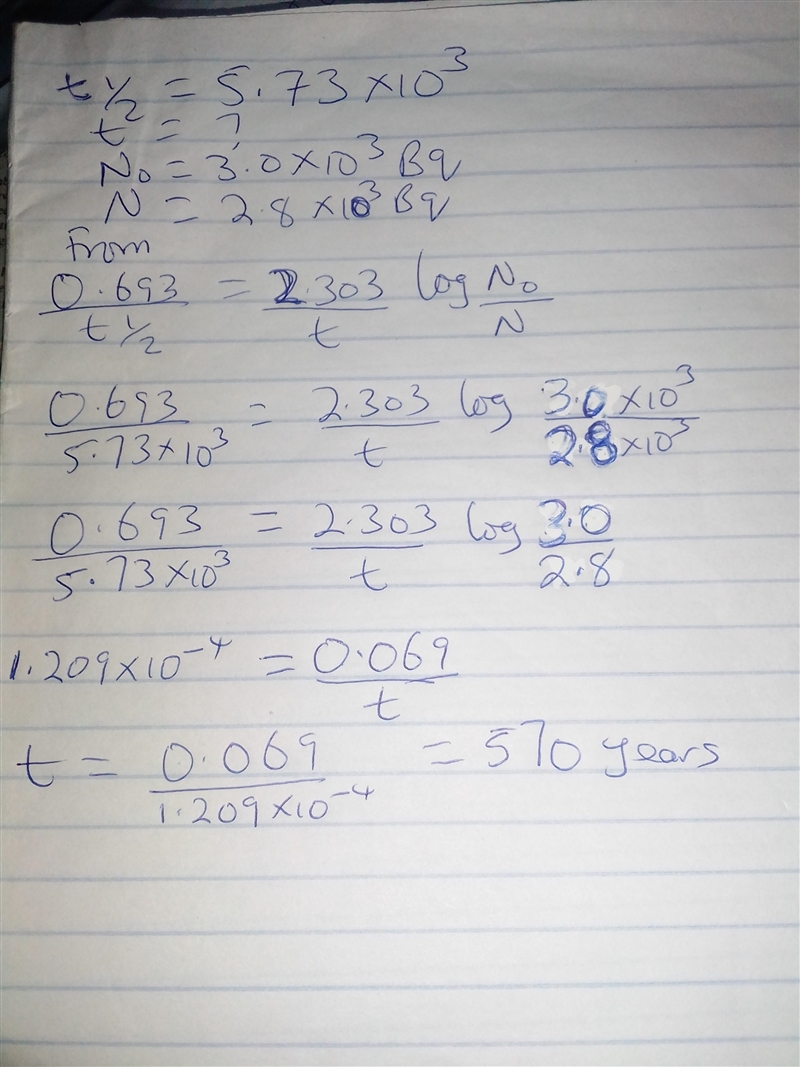 t½ = 5.73 × 10³
t = ?
N₀ = 3.0 × 10³ Bq
N = 2.8 × 10³ Bq
From
0.693 / t½ = 2.303 / t log N₀ / N
0.693 / 5.73 × 10³ = 2.303 / t log 3.0 × 10³ / 2.8 × 10³
0.693 / 5.73 × 10³ = 2.303 / t log 3.0 / 2.8
1.209 × 10⁻⁴ = 0.069 / t
t = 0.069 / 1.209 × 10⁻⁴ = 570 years